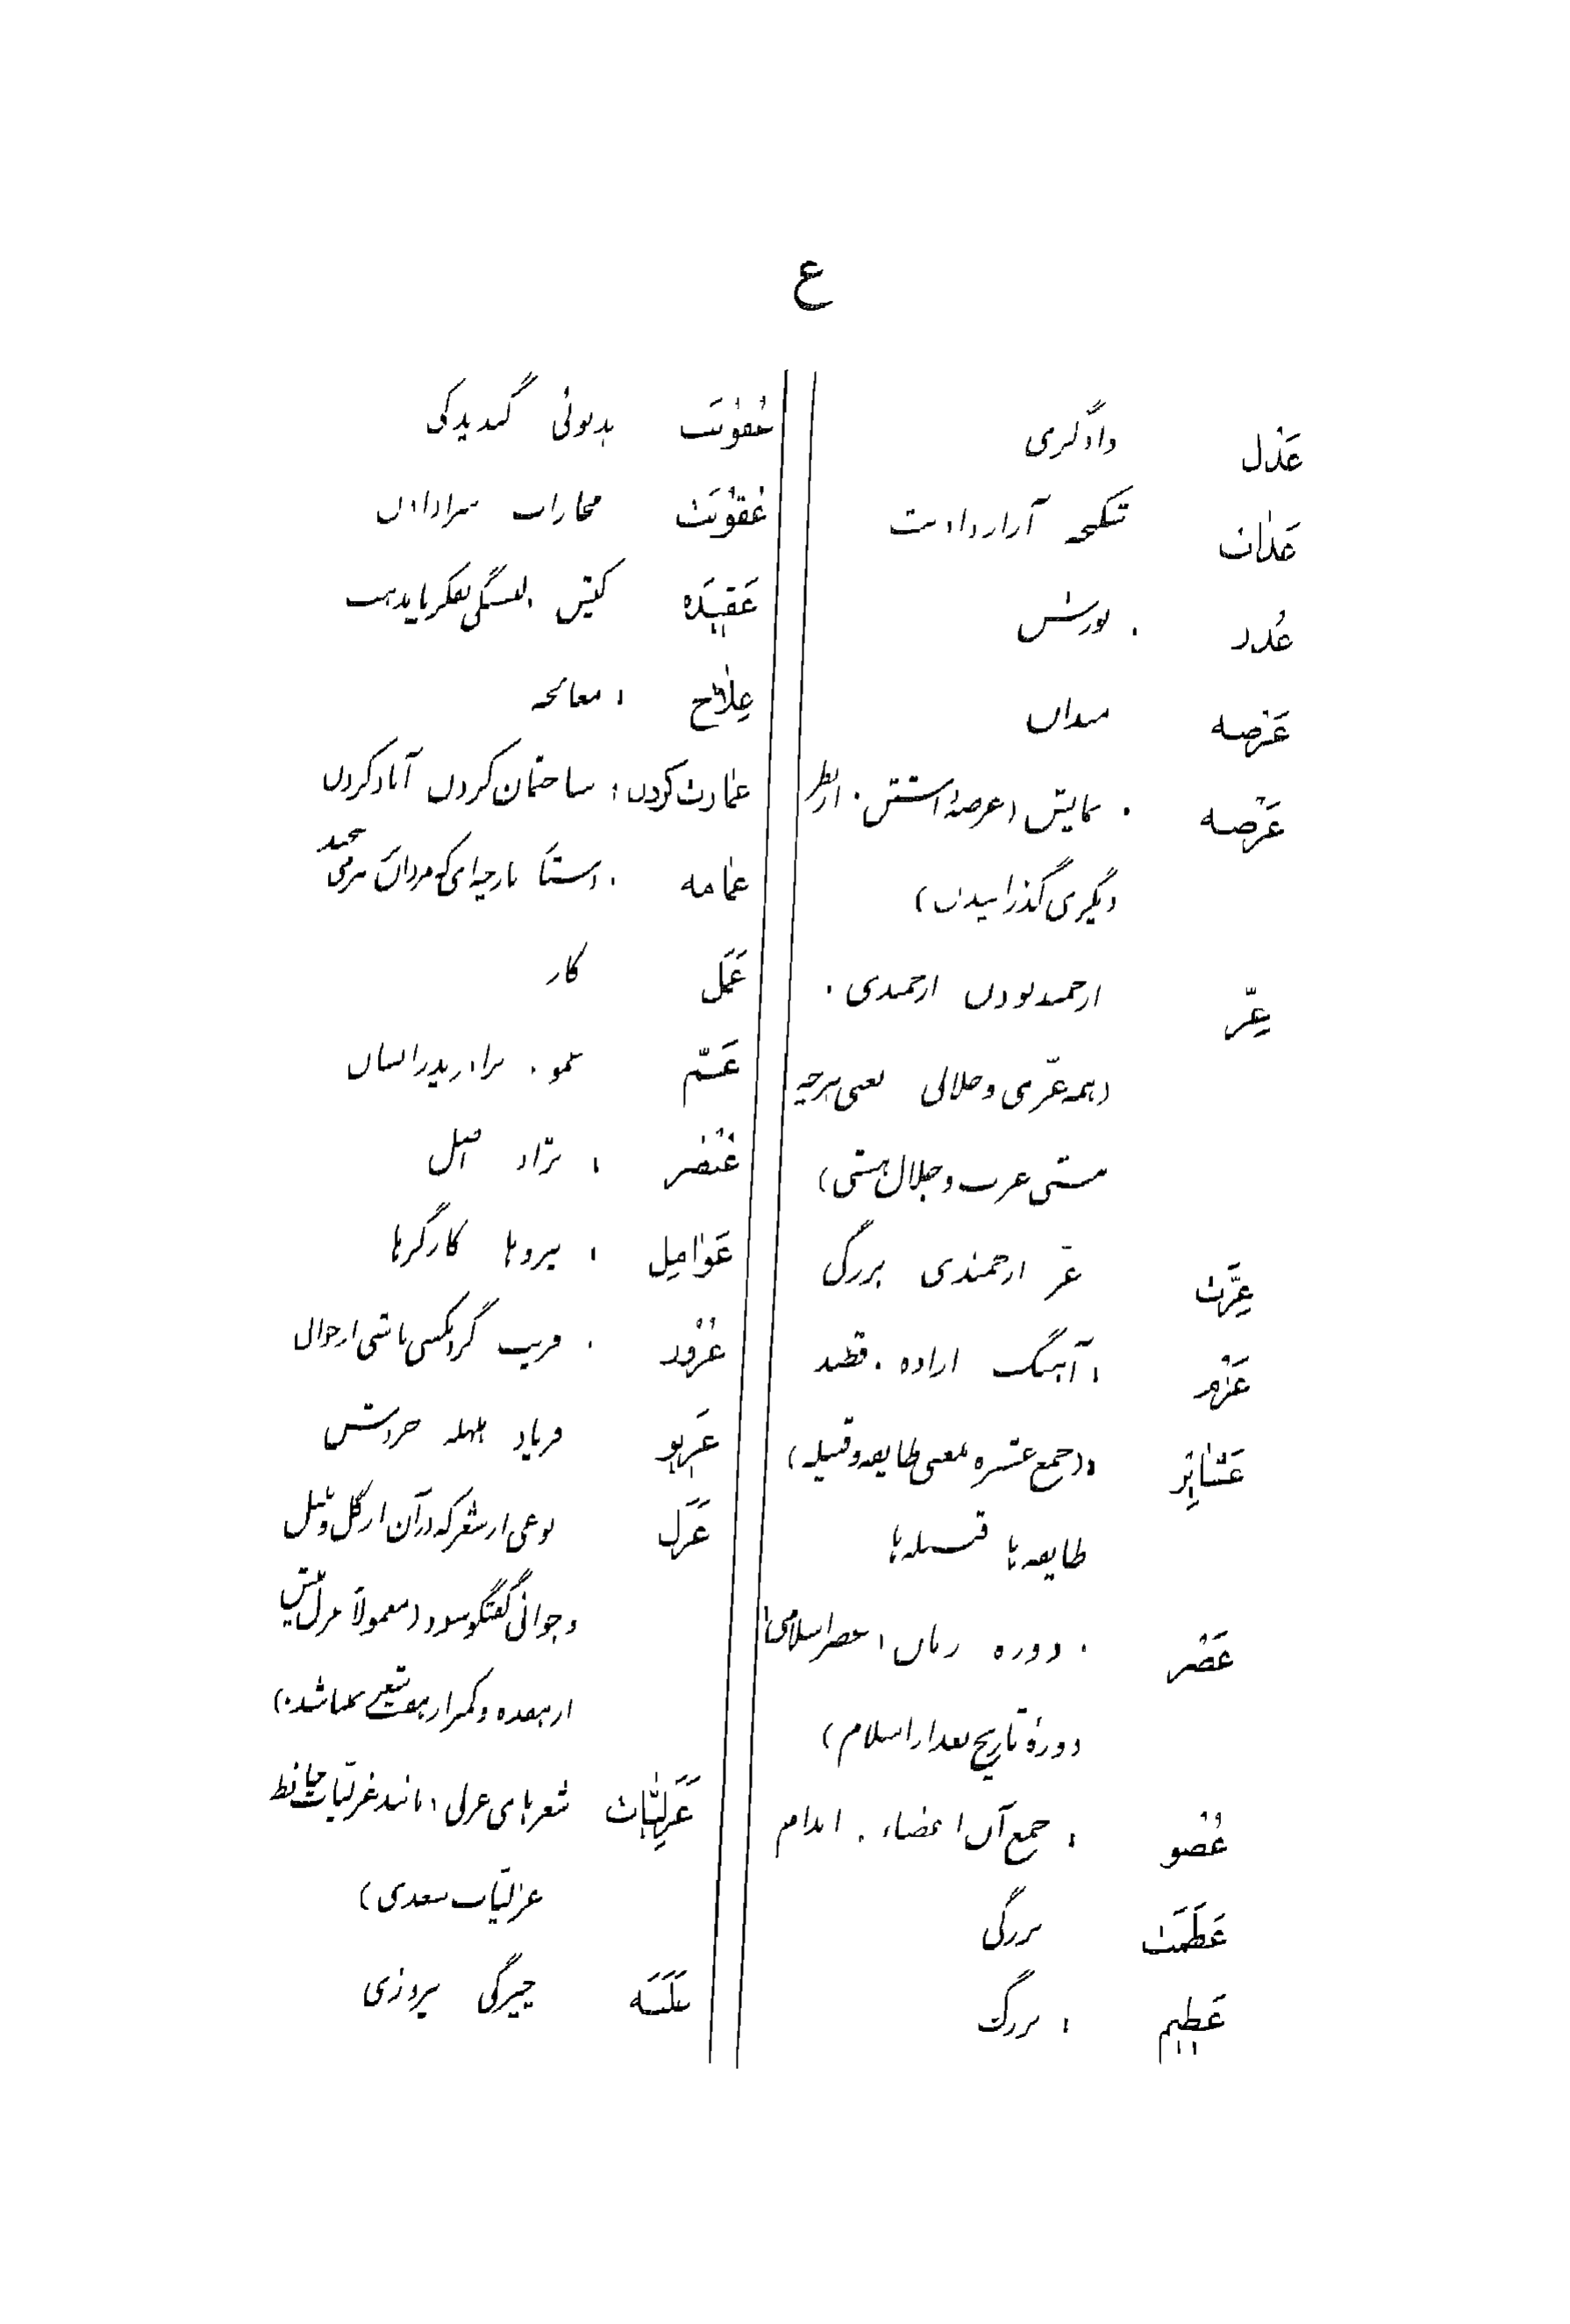 ع
عَدْل دادگری
عَذاب شکنجه آزار و اذیت
عُذر پوزش
عَرْصه میدان
عَرْضه نمایش (عرضهٔ داشتن ازنظر
دیگری گذرانیدن)
عِزّ ارجمند بودن ارجمندی
(همه عزّی و جلالی یعنی هرچه
هستی عزت و جلال هستی)
عِزَّت عزّ ارجمندی بزرگی
عَزْم : آهنگ اراده قصد
عَشایِر : (جمع عشیره بمعنی طایفه و قبیله)
طایفه‌ها قبیله‌ها
عَصْر دوره زمان (عصر اسلامی :
دورهٔ تاریخ بعد از اسلام)
عُضْو : جمع آن اعضاء . اندام
عَظَمَت بزرگی
عَظیم : بزرگ
عُفوُنَت بدبوئی گندیدگی
عُقوُبَت مجازات سزا دادن
عَقیدَه کیش بستگی فکر با مذهب
عِلاج : معالجه
عمارت کردن : ساختمان کردن آباد کردن
عمامه دستار پارچه‌ای که مردان بسر می پیچند
عَمَل کار
عَمّ عمو . برادر پدر انسان
عُنْصُر : نژاد اصل
عَوامِل : نیروها کارگرها
غُرُور فریب
غَریو فریاد هلهله خروش
غَزَل نوعی از شعر که در آن از گل و بلبل
و جوانی گفتگو شود (معمولاً غزل بیش
از هفده و کمتر از هفت بیت نباشد.)
غَزَلیّات شعرهای غزلی (مانند غزلیّات حافظ
غزلیّات سعدی)
غَلَبَه چیرگی پیروزی